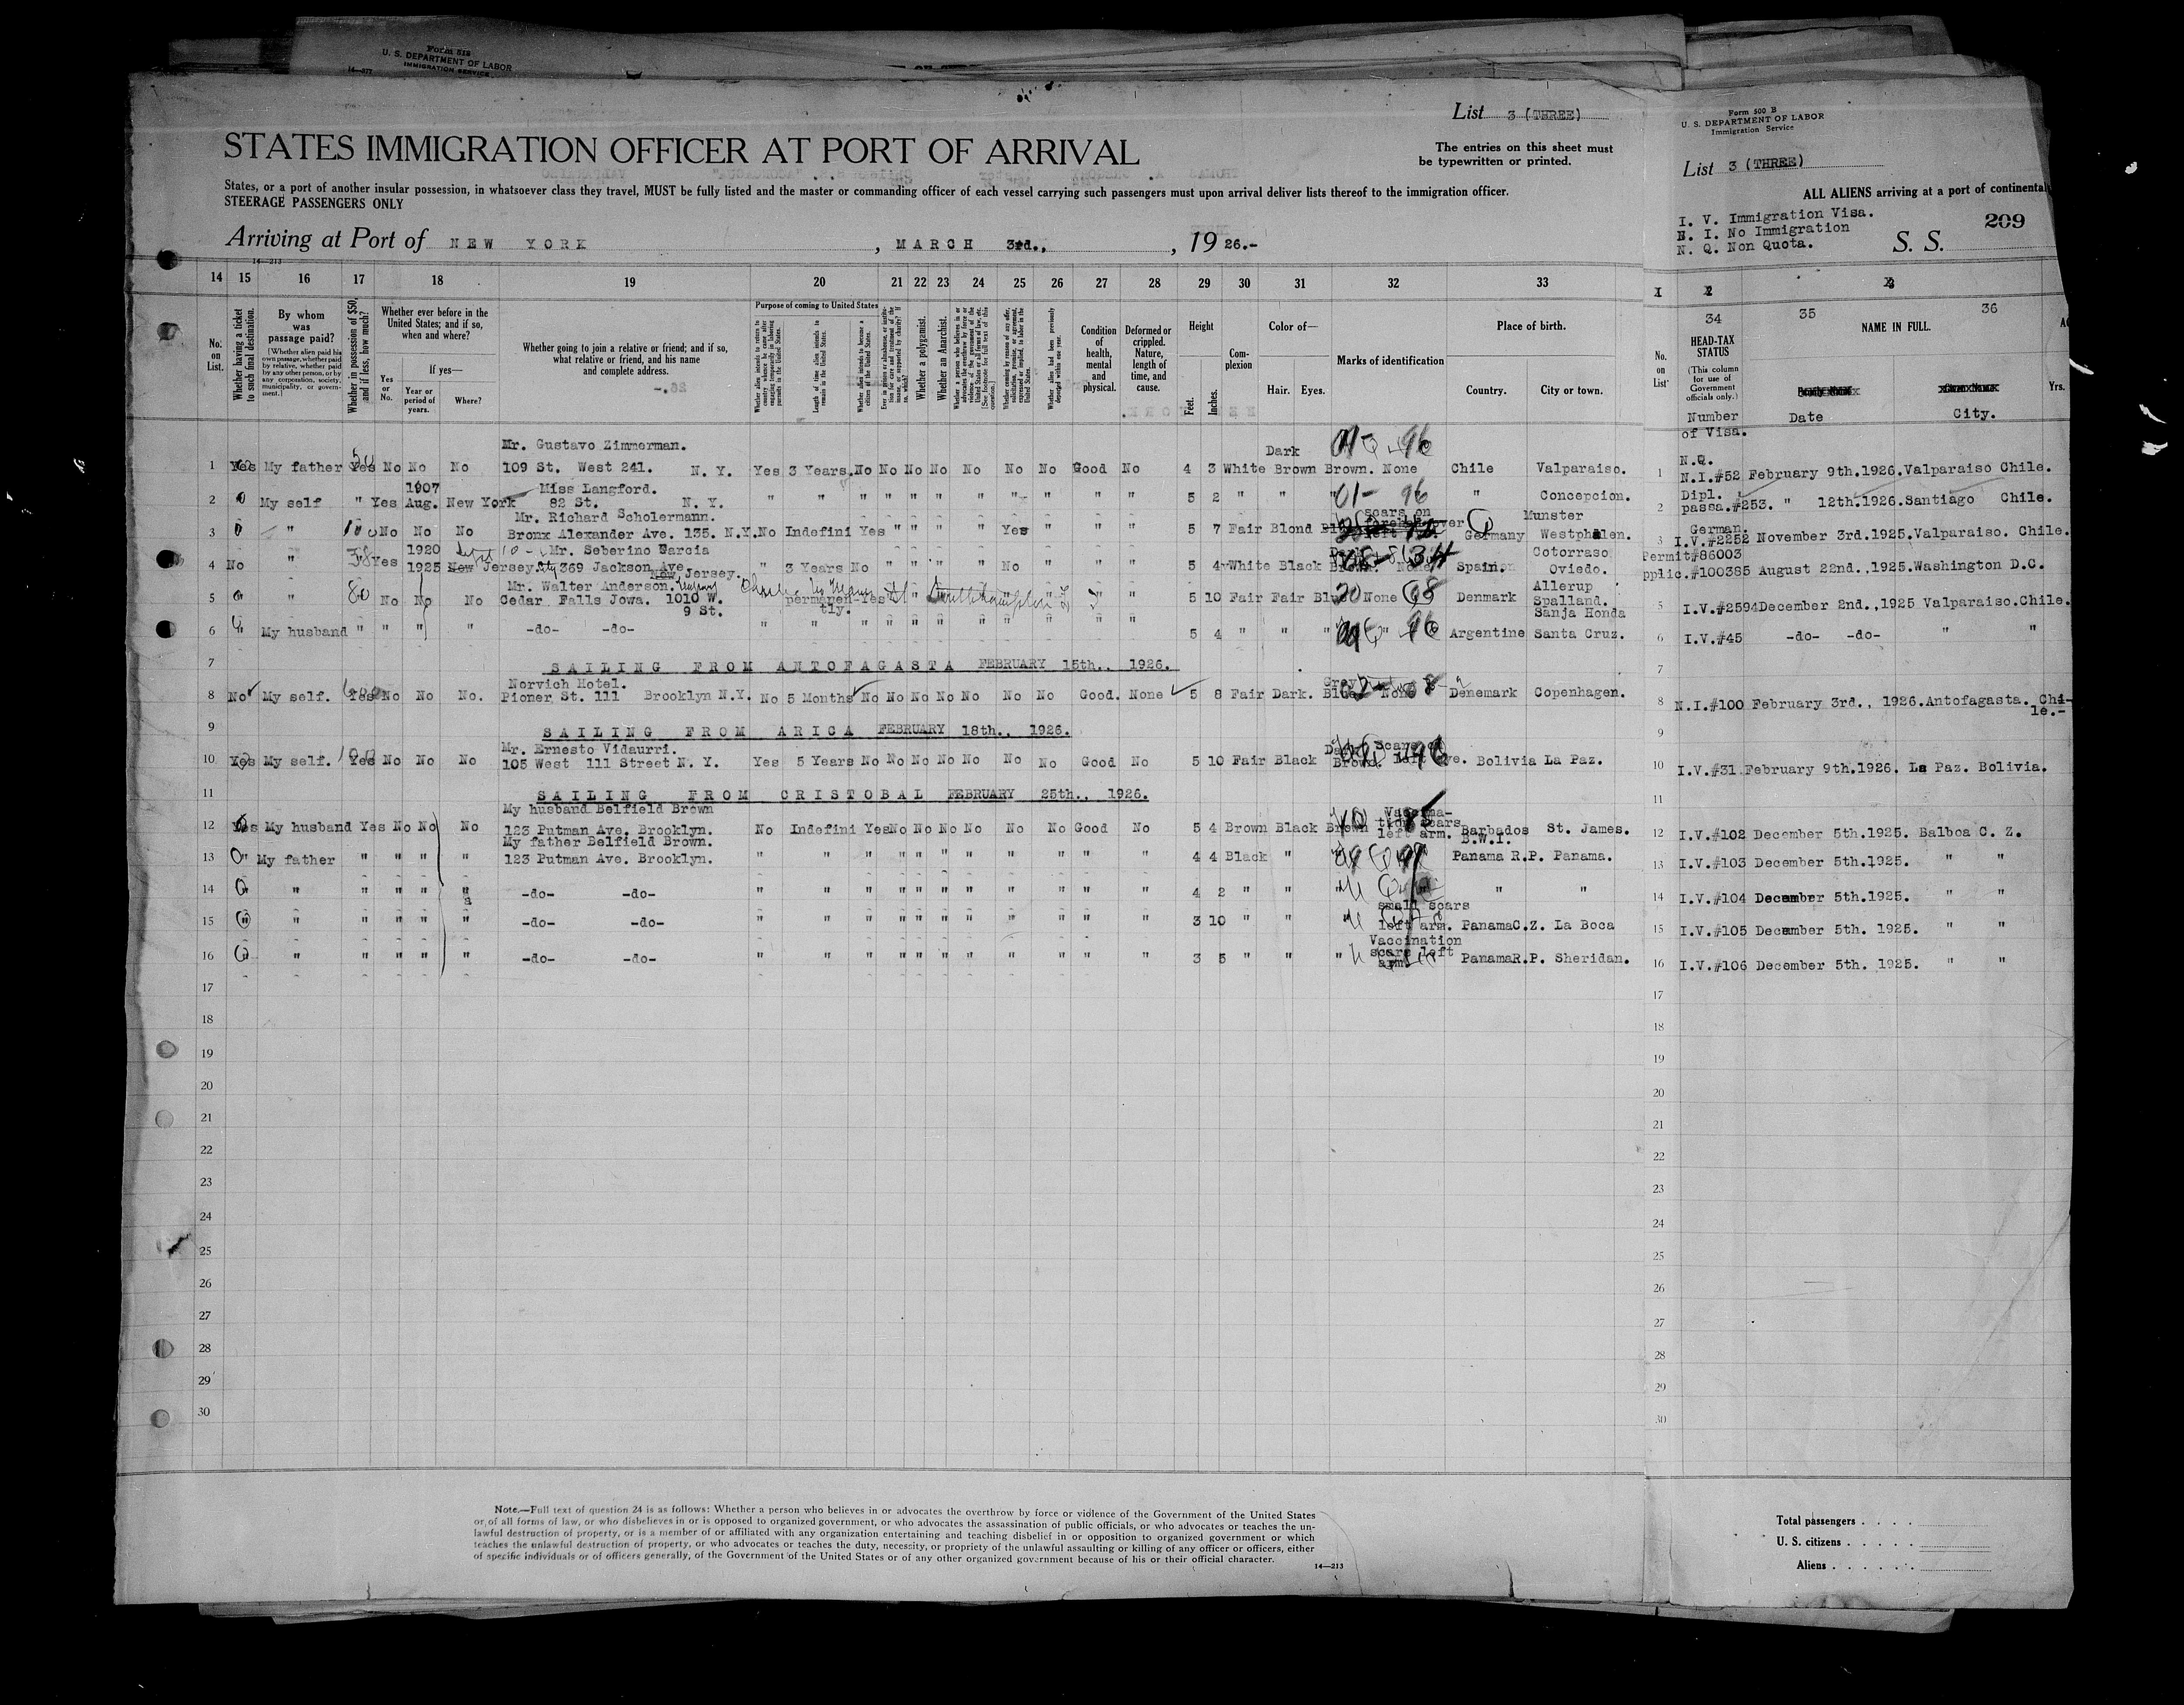 Form 512
U. S. DEPARTMENT OF LABOR
IMMIGRATION SERVICE
14—277
List 3 (THREE)
STATES IMMIGRATION OFFICER AT PORT OF ARRIVAL
The entries on this sheet must
be typewritten or printed.
States, or a port of another insular possession, in whatsoever class they travel, MUST be fully listed and the master or commanding officer of each vessel carrying such passengers must upon arrival deliver lists thereof to the immigration officer.
STEERAGE PASSENGERS ONLY
Arriving at Port of NEW YORK , MARCH 3rd., , 1926.-
14—213
14 15 16 17 18 19 20 21 22 23 24 25 26 27 28 29 30 31 32 33
No. on List.
Whether having a ticket to such final destination.
By whom was passage paid?
[Whether alien paid his own passage, whether paid by relative, whether paid by any other person, or by any corporation, society, municipality, or government.]
Whether in possession of $50, and if less, how much?
Whether ever before in the United States; and if so, when and where?
Yes or No.
If yes—
Year or period of years.
Where?
Whether going to join a relative or friend; and if so, what relative or friend, and his name and complete address.
Purpose of coming to United States
Length of time alien intends to remain in the United States.
Whether alien intends to become a citizen of the United States.
Whether a polygamist.
Whether an Anarchist.
Condition of health, mental and physical.
Deformed or crippled. Nature, length of time, and cause.
Height
Feet. Inches.
Complexion
Color of—
Hair. Eyes.
Marks of identification
Place of birth.
Country. City or town.
Mr. Gustavo Zimmerman. Dark
1 Yes My father Yes No No No 109 St. West 241. N. Y. Yes 3 Years. No No No No No No No Good No 4 3 White Brown Brown. None Chile Valparaiso.
1907 Miss Langford.
2 My self " Yes Aug. New York 82 St. N. Y. " " " " " " " " " " " 5 2 " " " " Concepcion.
Mr. Richard Scholermann. scars on Munster
3 " 100 No No No Bronx Alexander Ave. 135. N.Y. No Indefini Yes " " " " Yes " " " 5 7 Fair Blond Germany Westphalen.
1920 Mr. Seberino Garcia Cotorraso
4 No " Yes 1925 New Jersey. 369 Jackson Ave. New Jersey. " 3 Years No " " " " No " " " 5 4 White Black Brown. None Spain. Oviedo.
Mr. Walter Anderson. Allerup
5 " 80 No No No Cedar Falls Jowa. 1010 W. permanen- Yes 5 10 Fair Fair Blue None Denmark Spalland.
9 St. tly. Sanja Honda
6 " My husband " " " " -do- -do- " " " " " " " " " " " 5 4 " " " " Argentine Santa Cruz.
7 SAILING FROM ANTOFAGASTA FEBRUARY 15th., 1926.
Norvich Hotel. Grey
8 No My self. Yes No No No. Pioner St. 111 Brooklyn N.Y. No 5 Months No No No No No No Good. None 5 8 Fair Dark. Blue None Denemark Copenhagen.
9 SAILING FROM ARICA FEBRUARY 18th., 1926.
Mr. Ernesto Vidaurri. Dark Scars on
10 Yes My self. 100 Yes No No No 105 West 111 Street N. Y. Yes 5 Years No No No No No No No Good No 5 10 Fair Black Brown. left eye. Bolivia La Paz.
11 SAILING FROM CRISTOBAL FEBRUARY 25th., 1926.
My husband Belfield Brown Vaccina-
12 Yes My husband Yes No No No 123 Putman Ave. Brooklyn. No Indefini Yes No No No No No No Good No 5 4 Brown Black Brown tion scars left arm. Barbados B.W.I. St. James.
My father Belfield Brown.
13 " My father " " " " 123 Putman Ave. Brooklyn. " " " " " " " " " " " 4 4 Black " " Panama R.P. Panama.
14 " " " " " " -do- -do- " " " " " " " " " " " 4 2 " " " " "
small scars
15 " " " " " " -do- -do- " " " " " " " " " " " 3 10 " " " left arm. Panama C.Z. La Boca
Vaccination
16 " " " " " " -do- -do- " " " " " " " " " " " 3 5 " " " scars left arm. Panama R.P. Sheridan.
17
18
19
20
21
22
23
24
25
26
27
28
29
30
Note.—Full text of question 24 is as follows: Whether a person who believes in or advocates the overthrow by force or violence of the Government of the United States
or of all forms of law, or who disbelieves in or is opposed to organized government, or who advocates the assassination of public officials, or who advocates or teaches the un-
lawful destruction of property, or is a member of or affiliated with any organization entertaining and teaching disbelief in or opposition to organized government or which
teaches the unlawful destruction of property, or who advocates or teaches the duty, necessity, or propriety of the unlawful assaulting or killing of any officer or officers, either
of specific individuals or of officers generally, of the Government of the United States or of any other organized government because of his or their official character.
14—213
Form 500 B
U. S. DEPARTMENT OF LABOR
Immigration Service
List 3 (THREE)
ALL ALIENS arriving at a port of continental
I. V. Immigration Visa.
N. I. No Immigration
N. Q. Non Quota.
S. S.
209
1 2 3
34 35 36
No. on List
HEAD-TAX STATUS
(This column for use of Government officials only.)
NAME IN FULL.
Yrs.
Number of Visa.
Date
City.
N.Q.
1 N.I.#52 February 9th.1926. Valparaiso Chile.
Dipl.
2 passa.#253. " 12th.1926. Santiago Chile.
German.
3 I.V.#2252 November 3rd.1925. Valparaiso. Chile.
Permit#86003
4 pplic.#100385 August 22nd.,1925. Washington D.C.
5 I.V.#2594 December 2nd.,1925 Valparaiso. Chile.
6 I.V.#45 -do- -do- " "
7
8 N.I.#100 February 3rd., 1926. Antofagasta. Chi-
le.-
9
10 I.V.#31. February 9th.1926. La Paz. Bolivia.
11
12 I.V.#102 December 5th.1925. Balboa C. Z.
13 I.V.#103 December 5th.1925. " "
14 I.V.#104 December 5th.1925. " "
15 I.V.#105 December 5th. 1925. " "
16 I.V.#106 December 5th. 1925. " "
17
18
19
20
21
22
23
24
25
26
27
28
29
30
Total passengers . . . .
U. S. citizens . . . . .
Aliens . . . . . .